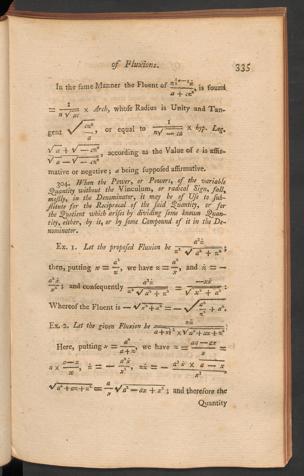 of Fluxions. 335
In the same Manner the Fluent of z^{½n-1}ż / a + cz^n, is found
= 1/n√ac × Arch, whose Radius is Unity and Tan-
gent √cz^n/a, or equal to 1/n√-ca × hyp. Log.
√a + √-cz^n / √a - √-cz^n, according as the Value of c is affir-
mative or negative; a being supposed affirmative.
304. When the Power, or Powers, of the variable
Quantity without the Vinculum, or radical Sign, fall,
mostly, in the Denominator, it may be of Use to sub-
stitute for the Reciprocal of the said Quantity, or for
the Quotient which arises by dividing some known Quan-
tity, either, by it, or by some Compound of it in the De-
nominator.
Ex. 1. Let the proposed Fluxion be
then, putting x = a²/z, we have z = a²/x, and ż = -
a²ẋ/x²; and consequently
Whereof the Fluent is
Ex. 2. Let the given Fluxion be
Here, putting x = a²/a+z, we have z =
; and therefore the
Quantity